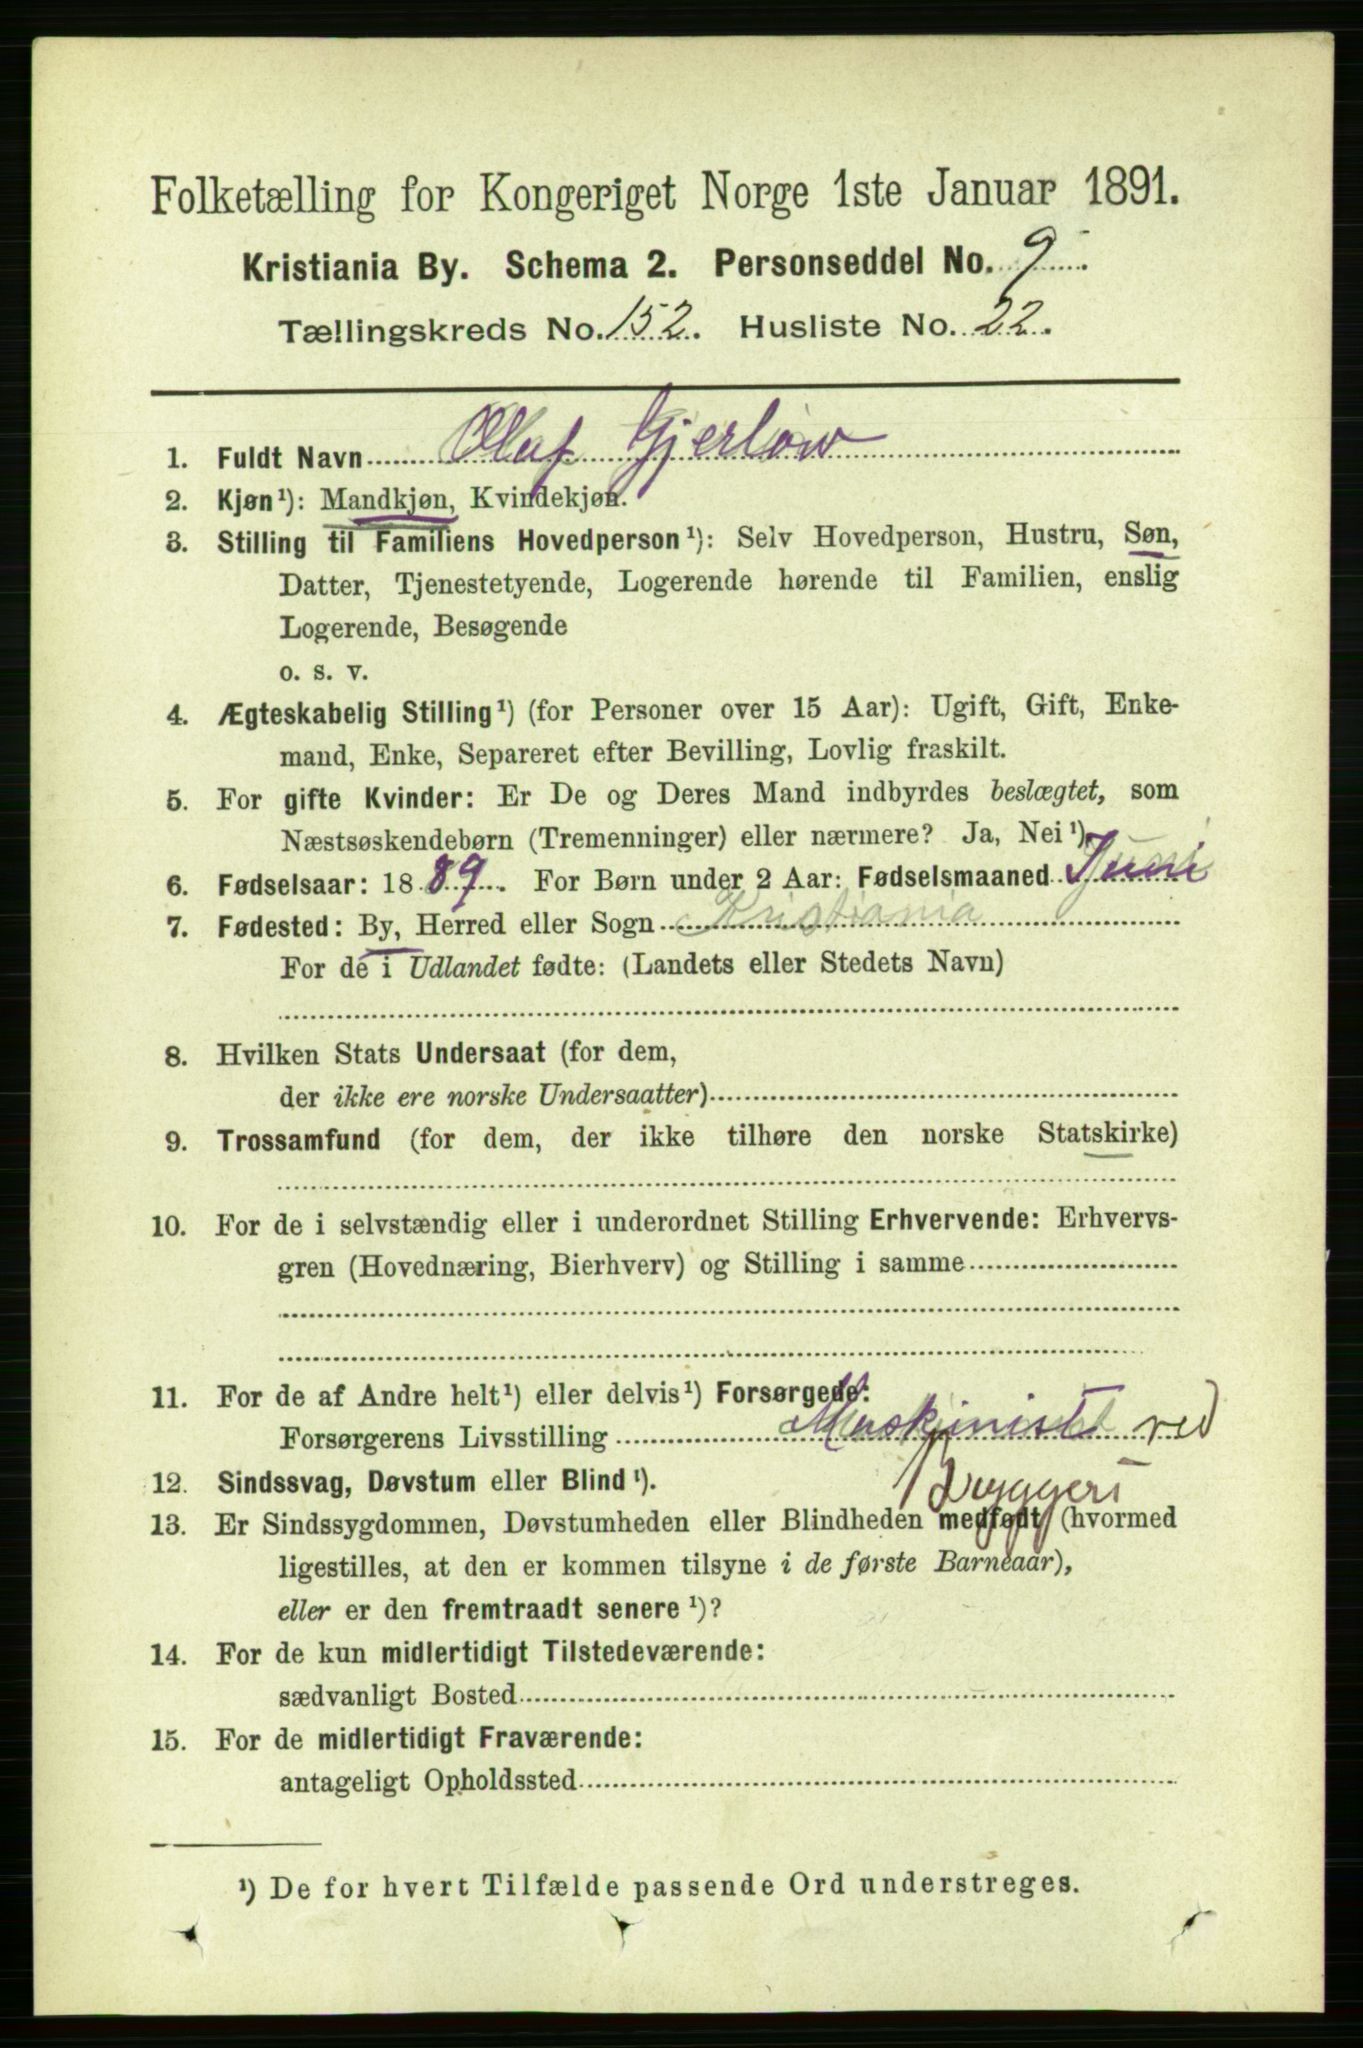 Folketælling for Kongeriget Norge 1ste Januar 1891.
Kristiania By. Schema 2. Personseddel No. 9
Tællingskreds No. 152. Husliste No. 22.
1. Fuldt Navn Olaf Gjerløw
2. Kjøn¹): Mandkjøn, Kvindekjøn.
3. Stilling til Familiens Hovedperson¹): Selv Hovedperson, Hustru, Søn,
Datter, Tjenestetyende, Logerende hørende til Familien, enslig
Logerende, Besøgende
o. s. v.
4. Ægteskabelig Stilling¹) (for Personer over 15 Aar): Ugift, Gift, Enke-
mand, Enke, Separeret efter Bevilling, Lovlig fraskilt.
5. For gifte Kvinder: Er De og Deres Mand indbyrdes beslægtet, som
Næstsøskendebørn (Tremenninger) eller nærmere? Ja, Nei¹)
6. Fødselsaar: 1889. For Børn under 2 Aar: Fødselsmaaned Juni
7. Fødested: By, Herred eller Sogn Kristiania
For de i Udlandet fødte: (Landets eller Stedets Navn)
8. Hvilken Stats Undersaat (for dem,
der ikke ere norske Undersaatter)
9. Trossamfund (for dem, der ikke tilhøre den norske Statskirke)
10. For de i selvstændig eller i underordnet Stilling Erhvervende: Erhvervs-
gren (Hovednæring, Bierhverv) og Stilling i samme
11. For de af Andre helt¹) eller delvis¹) Forsørgede:
Forsørgerens Livsstilling Maskinist ved
Bryggeri
12. Sindssvag, Døvstum eller Blind¹).
13. Er Sindssygdommen, Døvstumheden eller Blindheden medfødt (hvormed
ligestilles, at den er kommen tilsyne i de første Barneaar),
eller er den fremtraadt senere¹)?
14. For de kun midlertidigt Tilstedeværende:
sædvanligt Bosted
15. For de midlertidigt Fraværende:
antageligt Opholdssted
¹) De for hvert Tilfælde passende Ord understreges.